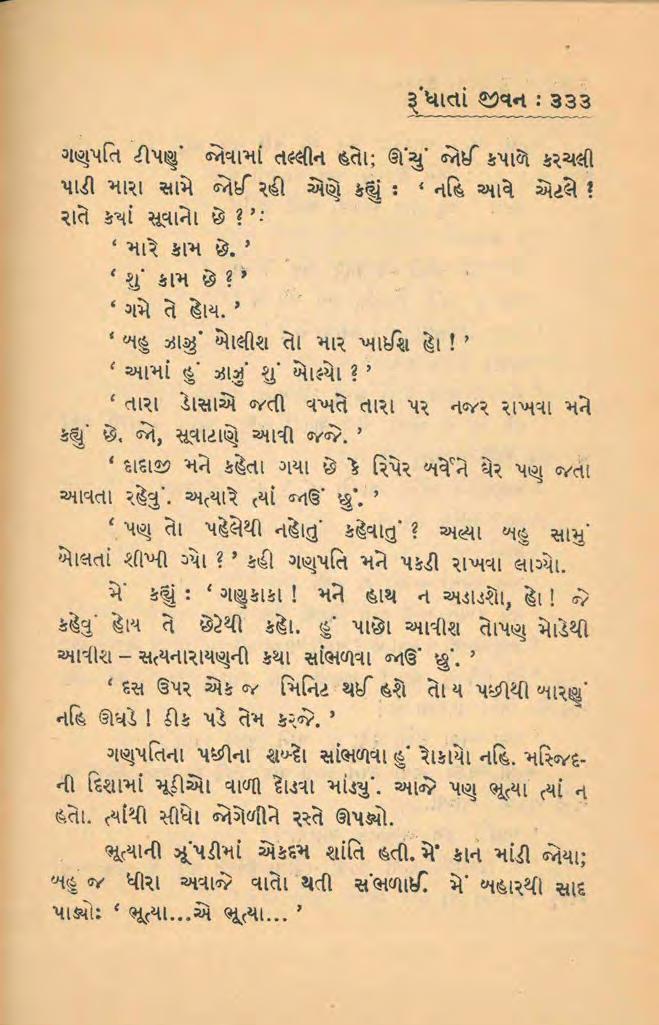 રૂંધાતાં જીવન : ૩૩૩
ગણપતિ ટીપણું જોવામાં તલ્લીન હતો; ઊંચું જોઈ કપાળે કરચલી
પાડી મારા સામે જોઈ રહી એણે કહ્યું : ‘ નહિ આવે એટલે ?
રાતે ક્યાં સૂવાનો છે ?’:
‘ મારે કામ છે. ’
‘ શું કામ છે ? ’
‘ ગમે તે હોય. ’
‘ બહુ ઝાઝું બોલીશ તો માર ખાઈશ હો ! ’
‘ આમાં હું ઝાઝું શું બોલ્યો ? ’
‘ તારા ડોસાએ જતી વખતે તારા પર નજર રાખવા મને
કહ્યું છે. જો, સૂવાટાણે આવી જજે. ’
‘ દાદાજી મને કહેતા ગયા છે કે રિપેર બર્વેને ઘેર પણ જતા
આવતા રહેવું. અત્યારે ત્યાં જાઉં છું. ’
‘ પણ તો પહેલેથી નહોતું કહેવાતું ? અલ્યા બહુ સામું
બોલતાં શીખી ગ્યો ? ’ કહી ગણપતિ મને પકડી રાખવા લાગ્યો.
મેં કહ્યું : ‘ ગણુકાકા ! મને હાથ ન અડાડશો, હો ! જે
કહેવું હોય તે છેટેથી કહો. હું પાછો આવીશ તોપણ મોડેથી
આવીશ – સત્યનારાયણની કથા સાંભળવા જાઉં છું. ’
‘ દસ ઉપર એક જ મિનિટ થઈ હશે તો ય પછીથી બારણું
નહિ ઊઘડે ! ઠીક પડે તેમ કરજે. ’
ગણપતિના પછીના શબ્દો સાંભળવા હું રોકાયો નહિ. મસ્જિદ-
ની દિશામાં મૂઠીઓ વાળી દોડવા માંડયું. આજે પણ ભૂત્યા ત્યાં ન
હતો. ત્યાંથી સીધો જોગેળીને રસ્તે ઊપડ્યો.
ભૂત્યાની ઝૂંપડીમાં એકદમ શાંતિ હતી. મેં કાન માંડી જોયા;
બહુ જ ધીરા અવાજે વાતો થતી સંભળાઈ. મેં બહારથી સાદ
પાડ્યો: ‘ ભૂત્યા...એ ભૂત્યા... ’